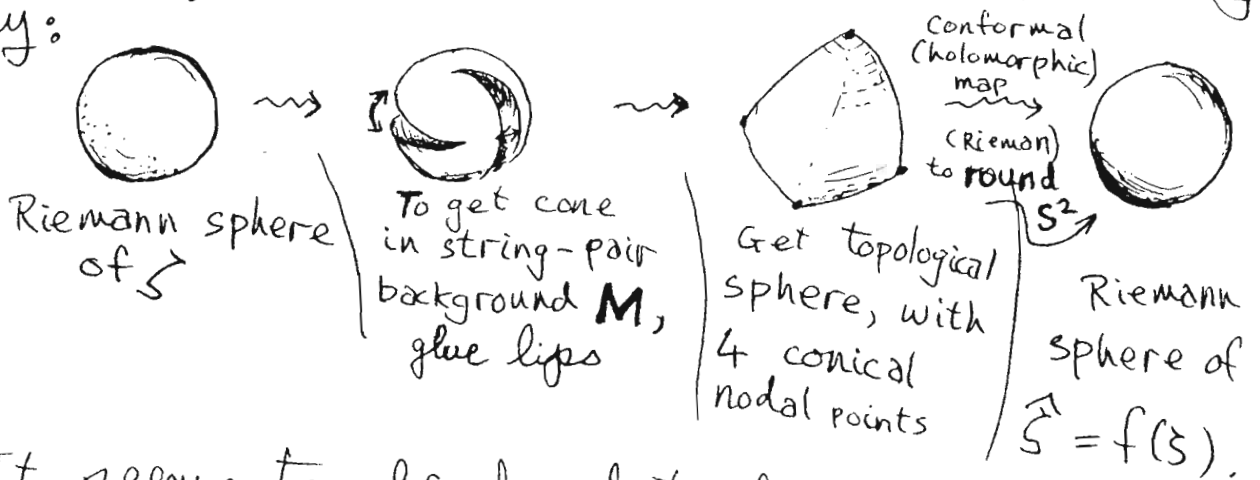 y:
Riemann sphere
of ζ
To get cone
in string-pair
background M,
glue lips
Get topological
sphere, with
4 conical
nodal points
Conformal
(holomorphic)
map
(Rieman)
to round
S²
Riemann
sphere of
ζ̂ = f(ζ).